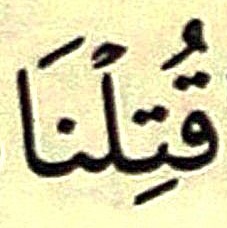 قُتِلْنَا